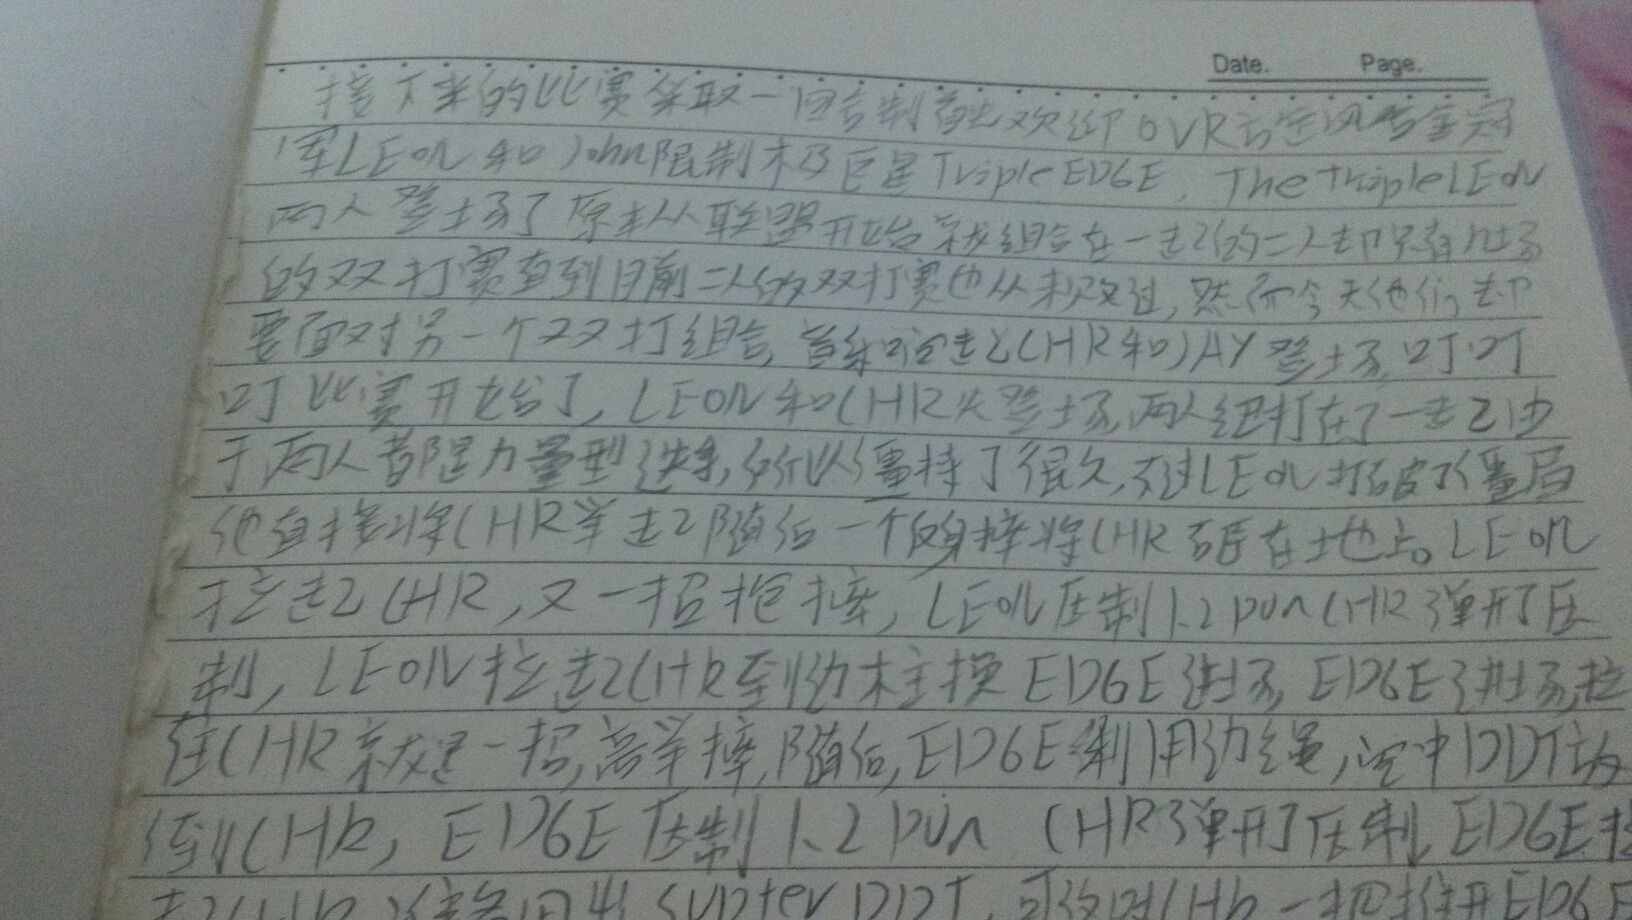 Date. Page.
接下来的比赛采取一回合制首先欢迎OVR冠军
军LEON和John限制木及巨星TripleEDGE, The tripleLEON
两人登土场了原来从联盟开始就组合在一起的二人却只有几场
的双打赛直到目前二人的双打赛也从未败过,然而今天他们却
要面对另一个双打组合,首先CHR和JAY登土场,叮叮
叮比赛开始了,LEON和CHR先登土场,两人纽打在了一起由
于两人都是力量型选手,所以僵持了很久,不过LEON打破了僵局
他直接将CHR举起随后一个侧身摔将CHR砸在土地上。LEON
拉起CHR,又一招抱摔,LEON压制1、2 pun CHR弹开了压
制,LEON拉起CHR到边柱换EDGE进场,EDGE进场,拉
住CHR就是一招,高举摔,随后,EDGE利用边绳,空中DDT放
倒CHR,EDGE压制1、2 pun CHR弹开了压制,EDGE拉
起CHR准备用出supter DDT,可谁知CHR一把推开EDGE